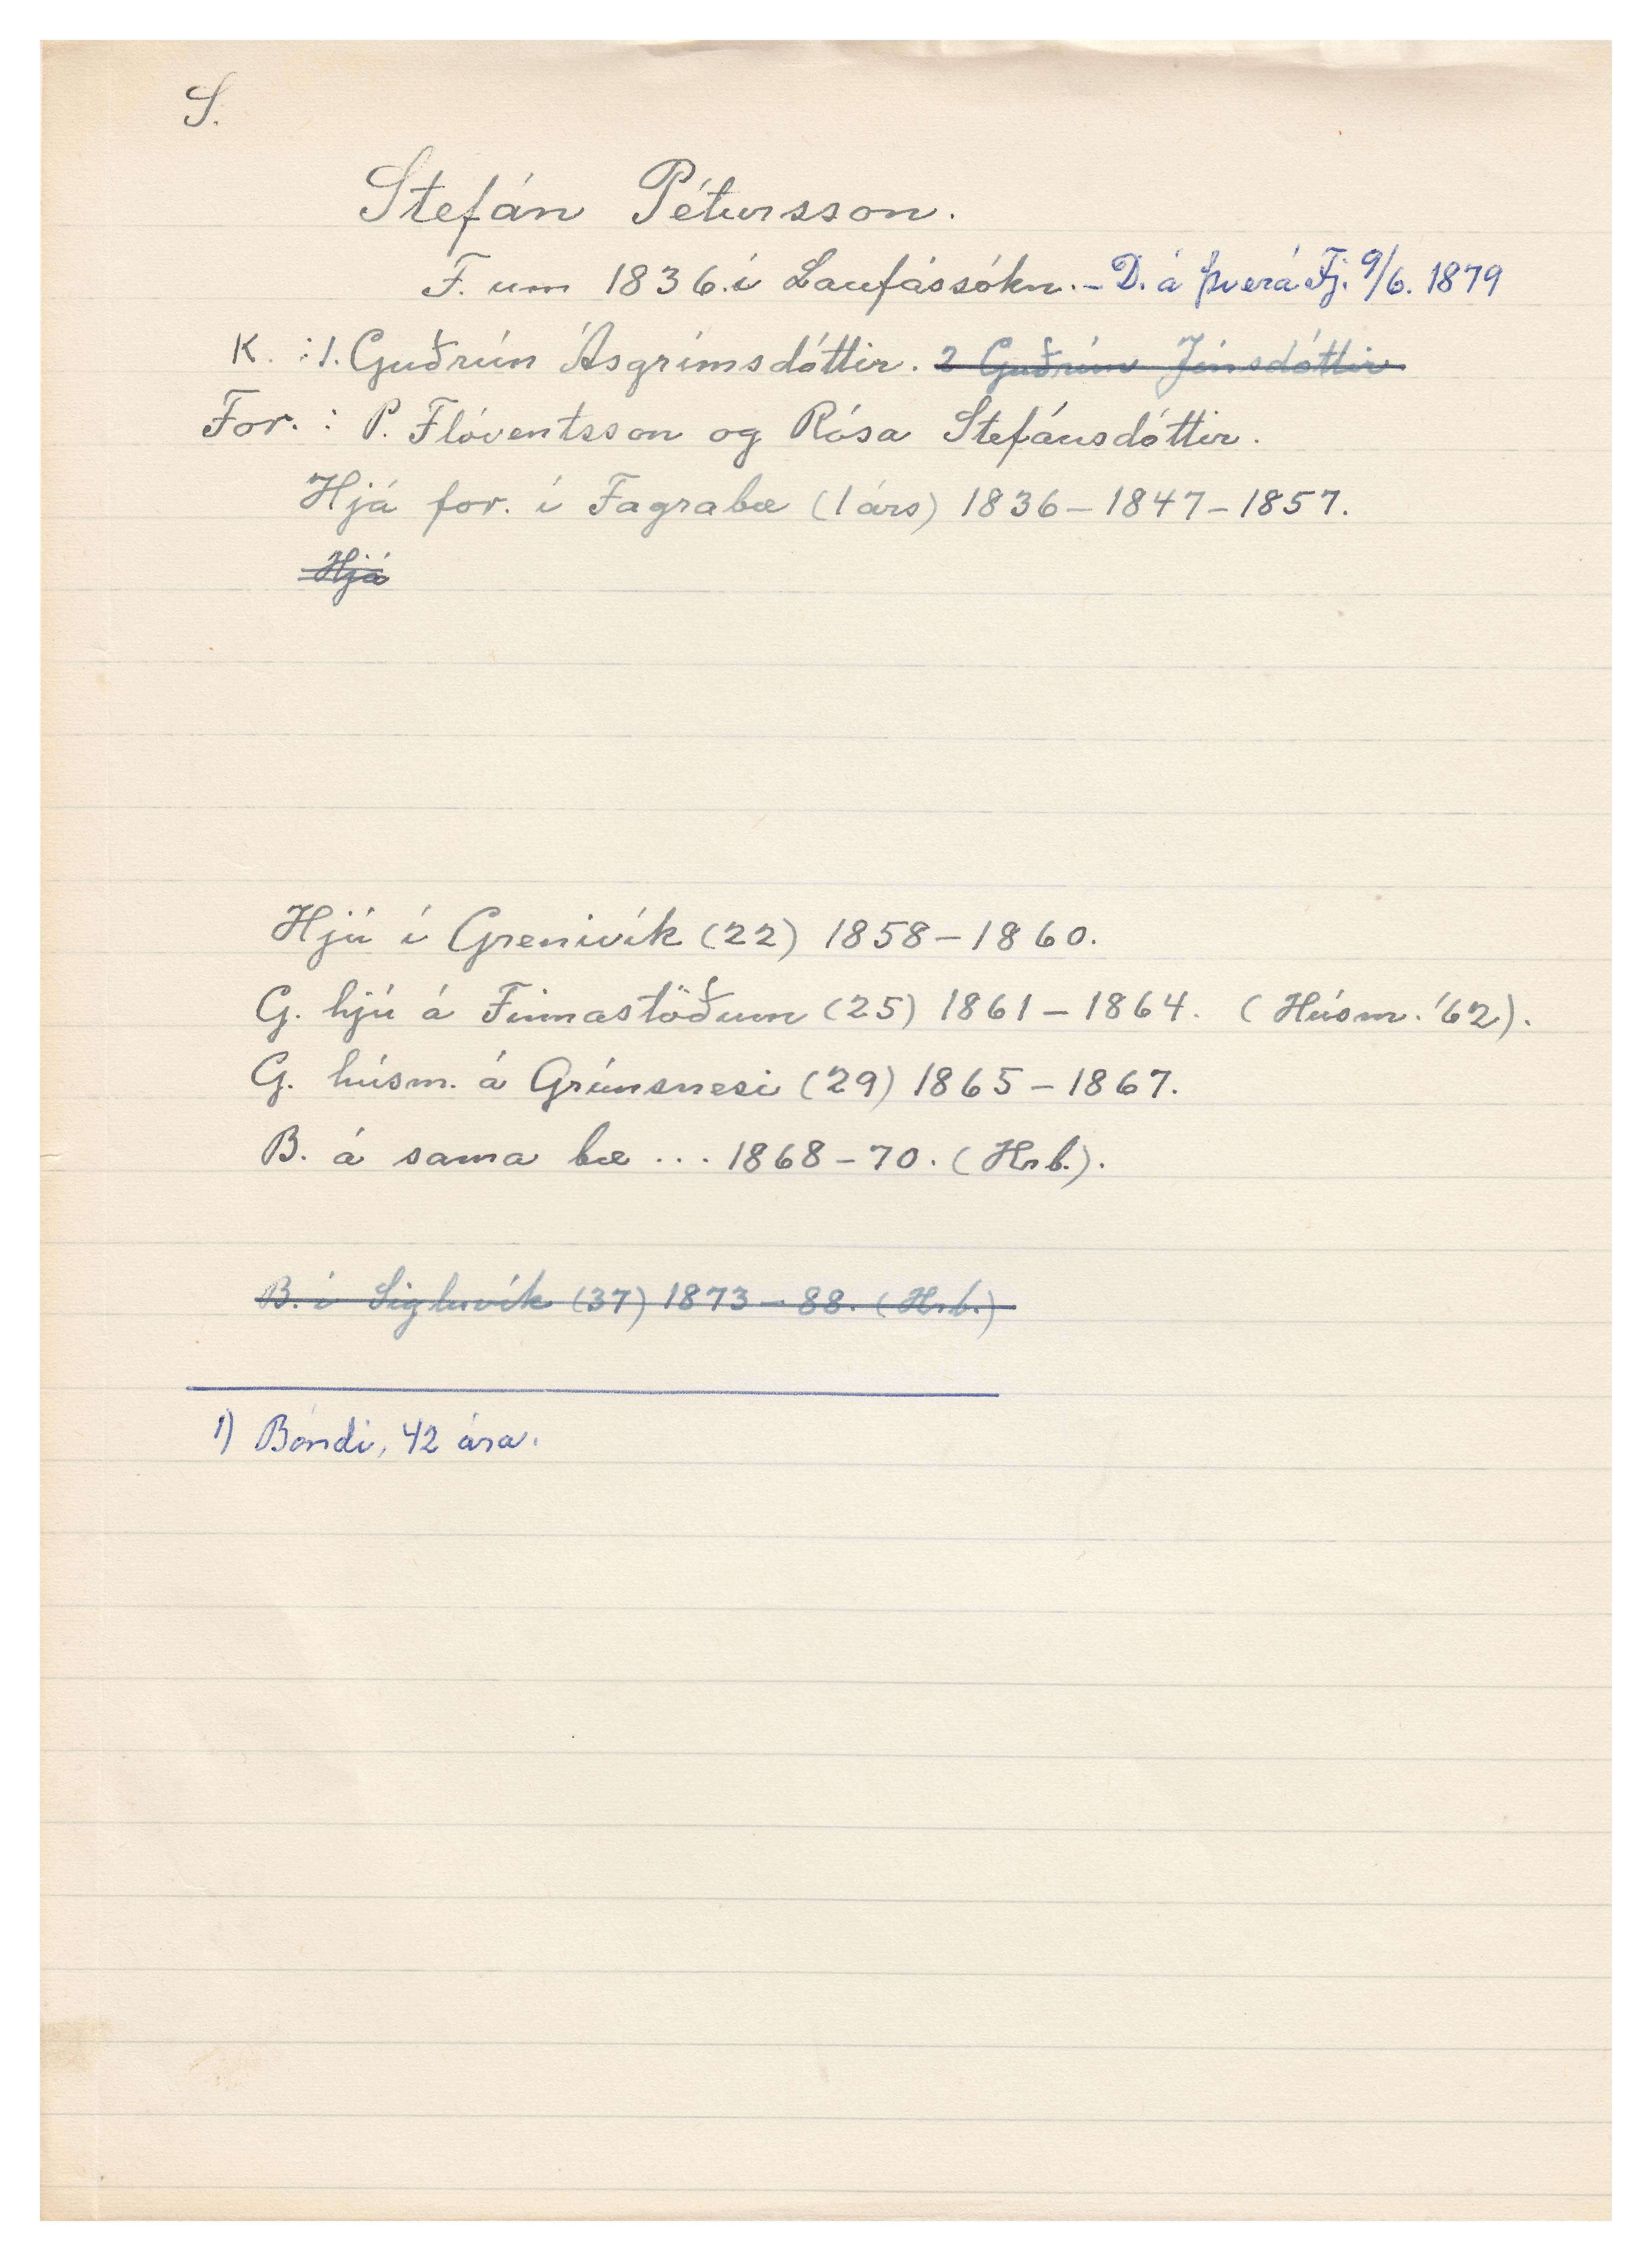 S.
Stefán Pétursson.
F. um 1836 í Laufássókn. – D. á Þverá Fj. 9/6. 1879
K. : 1. Guðrún Ásgrímsdóttir. 2 Guðrún Jónsdóttir
For. : P. Flóventsson og Rósa Stefánsdóttir.
Hjá for. í Fagrabæ (1 árs) 1836 – 1847 – 1857.
Hjá
Hjú í Grenivík (22) 1858 – 1860.
G. hjú á Finnastöðum (25) 1861 – 1864. (Húsm. '62).
G. húsm. á Grímsnesi (29) 1865 – 1867.
B. á sama bæ ... 1868 – 70. (Hrb.).
B. í Sigluvík (37) 1873 – 88. (Hrb.)
1) Bóndi, 42 ára.